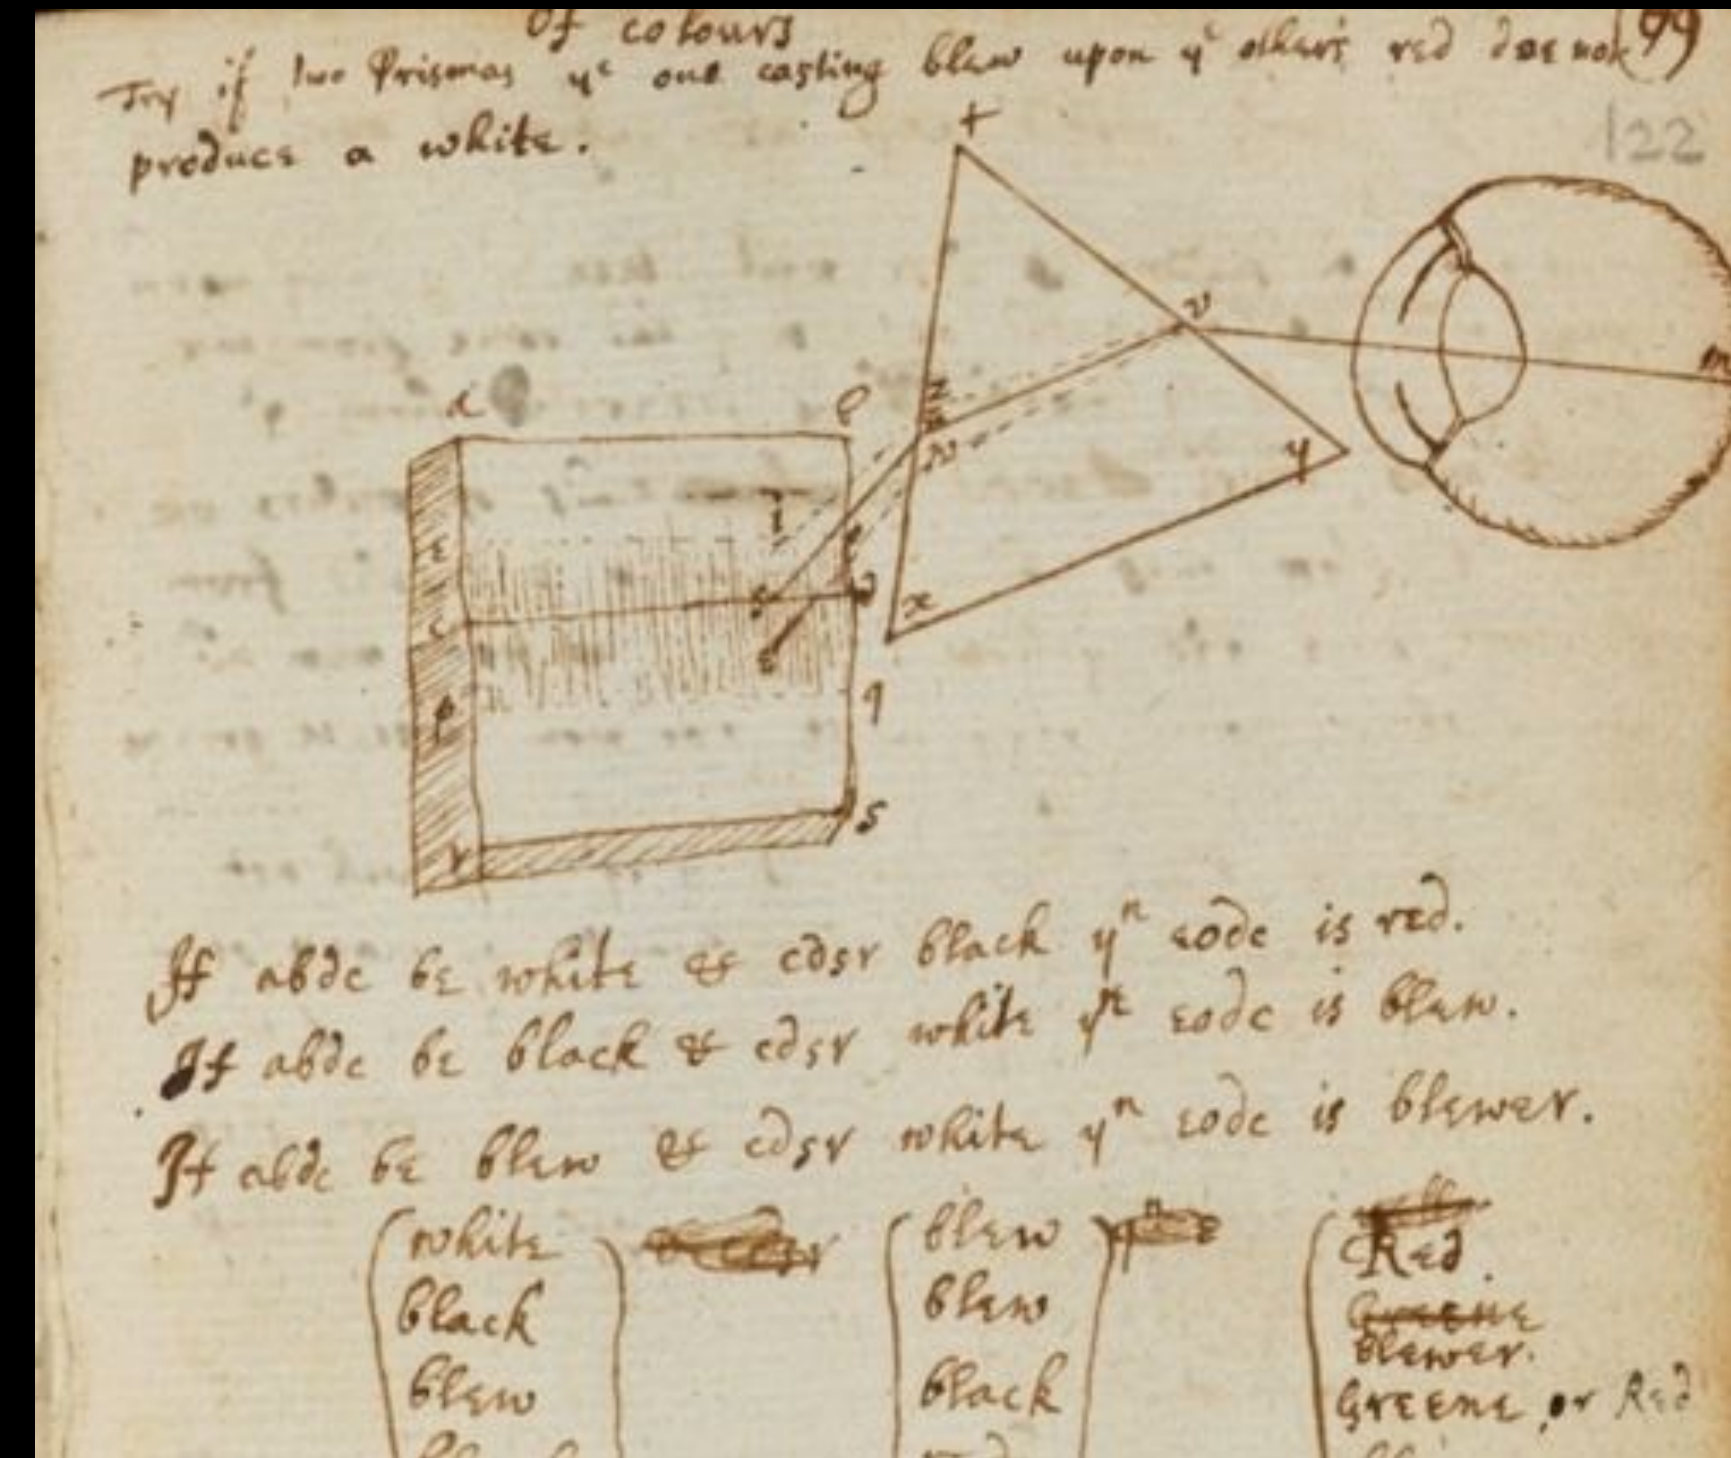 Of colours
Try if two Prismas yᵉ one casting blew upon yᵉ other's red doe not (99
produce a white.
122
t
v
m
z
w
y
a
b
i
x
d
c
p
q
s
r
If abdc be white & cdsr black yⁿ eodc is red.
If abdc be black & cdsr white yⁿ eodc is blew.
If abdc be blew & cdsr white yⁿ eodc is blewer.
white blew Red.
black blew Greene
blewer.
blew black Greene or Red